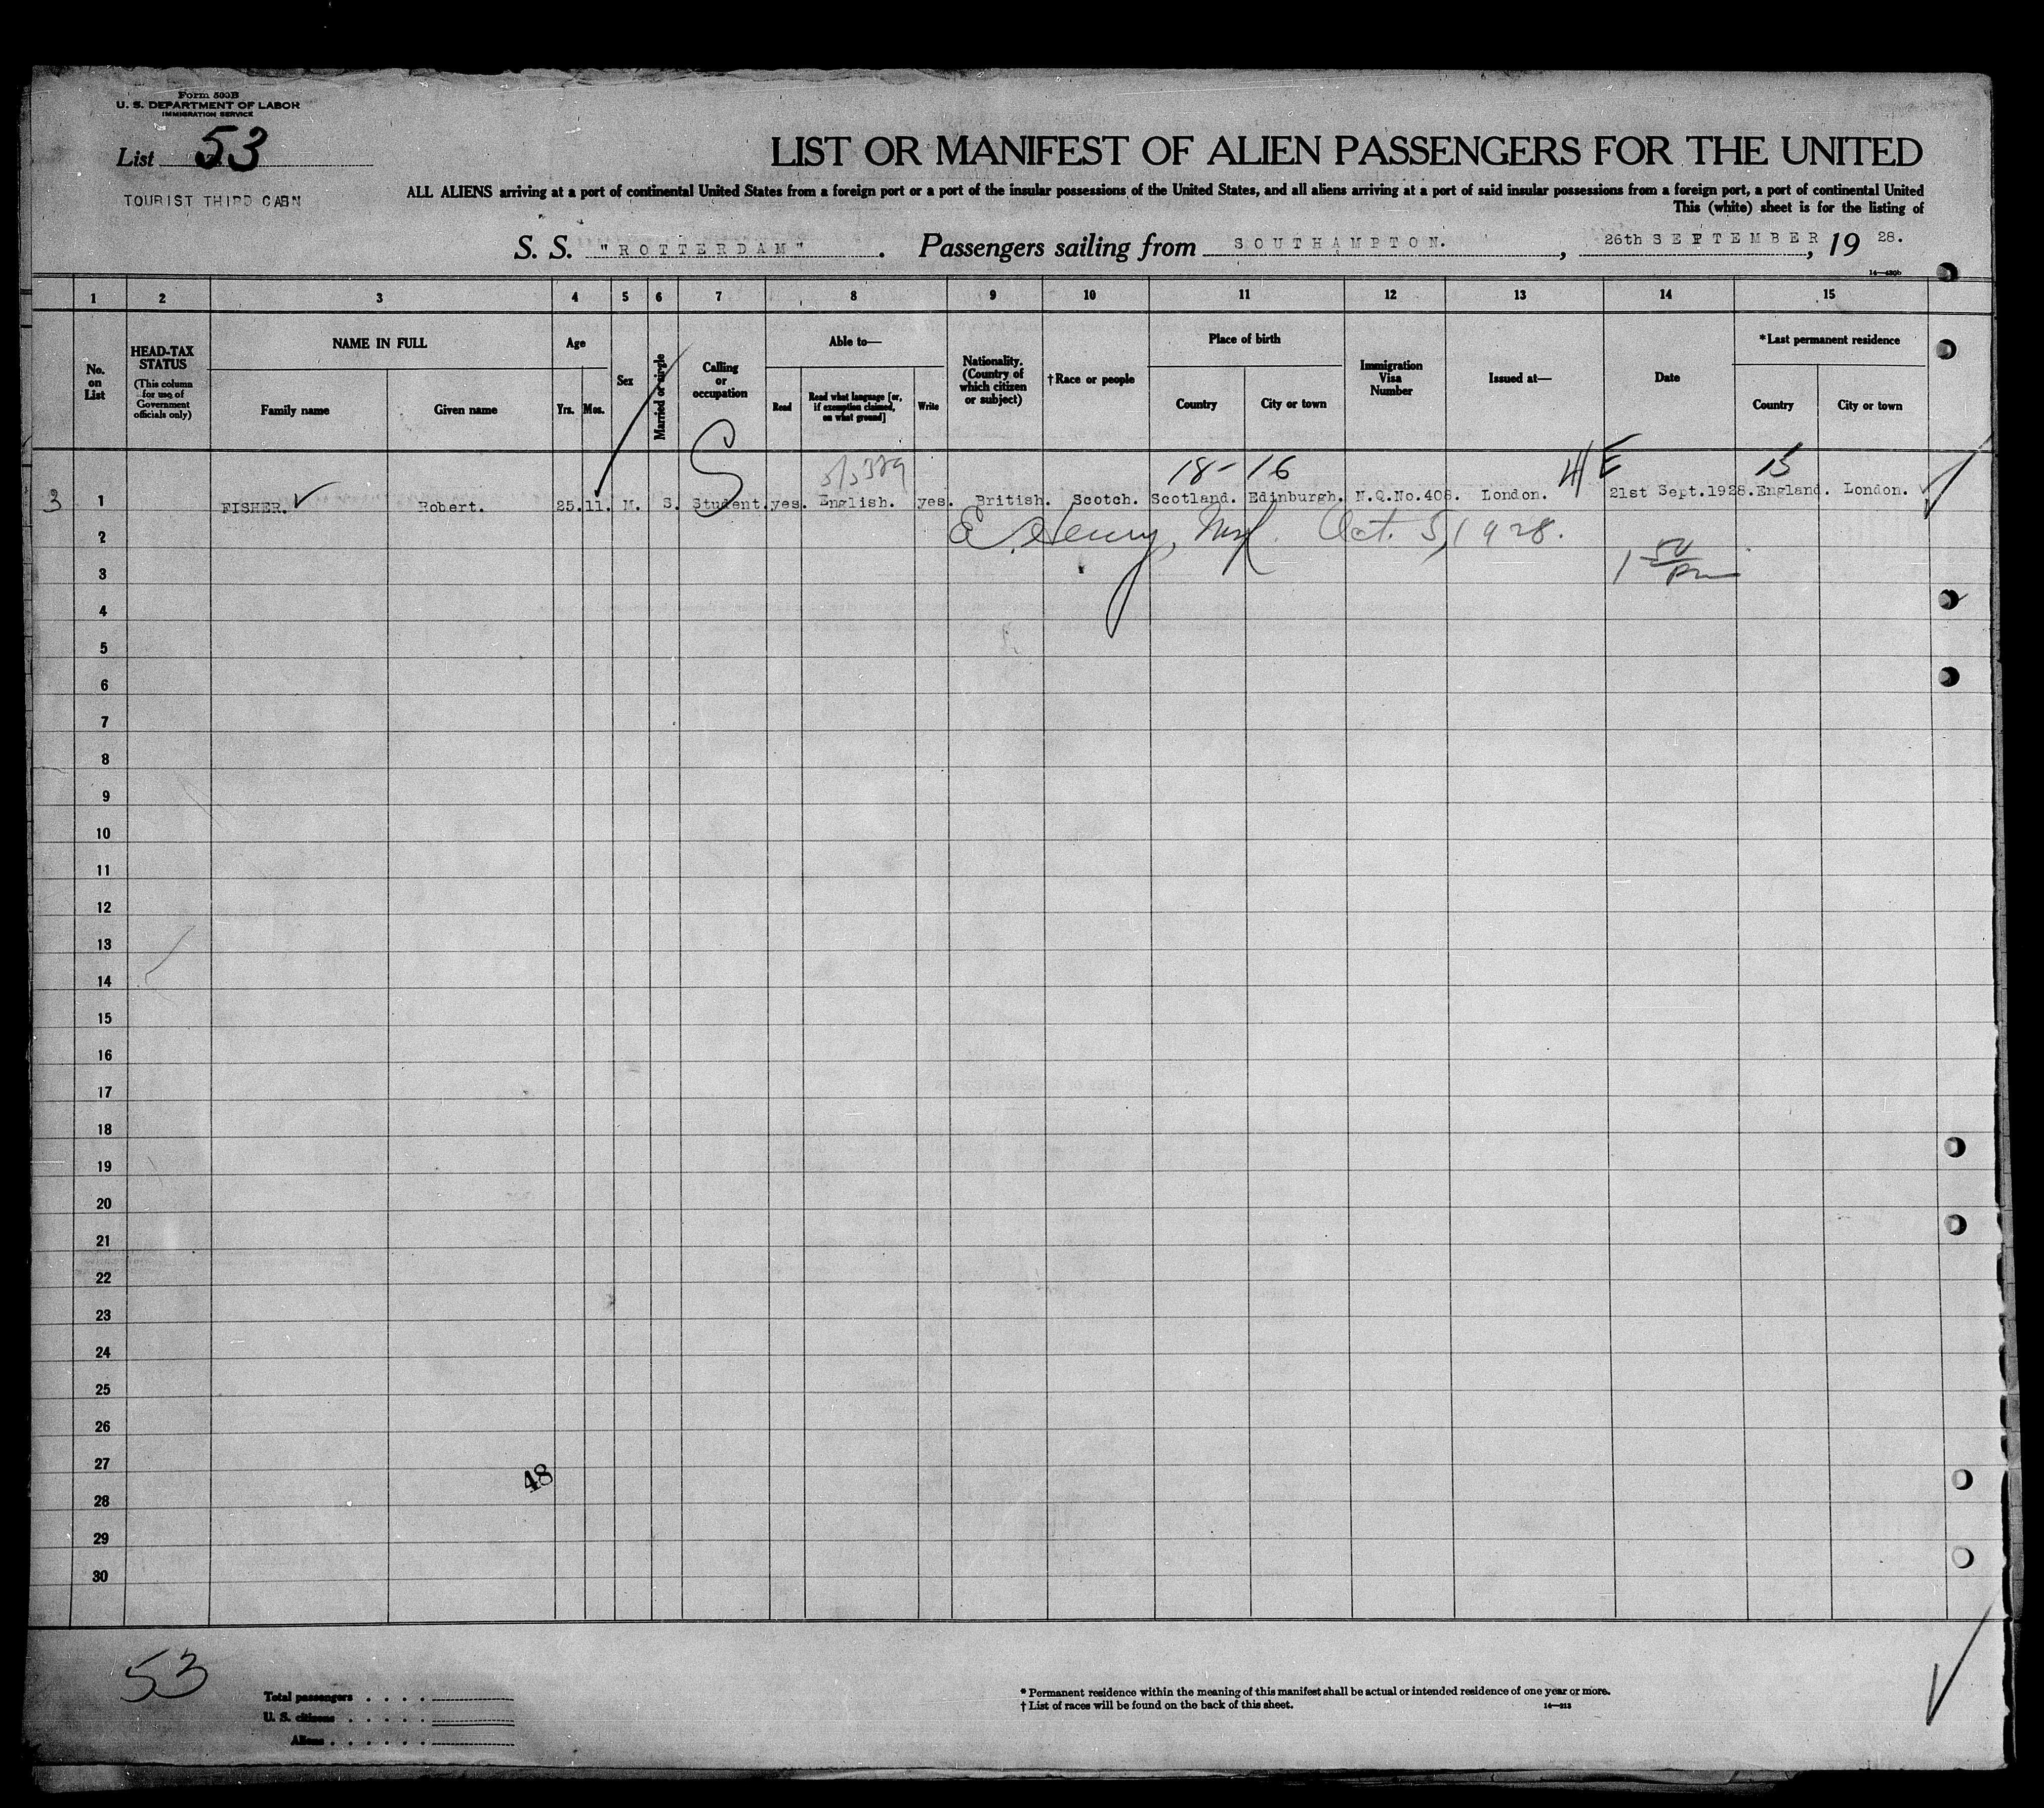 Form 500B
U. S. DEPARTMENT OF LABOR
IMMIGRATION SERVICE
List 53
TOURIST THIRD CABN
LIST OR MANIFEST OF ALIEN PASSENGERS FOR THE UNITED
ALL ALIENS arriving at a port of continental United States from a foreign port or a port of the insular possessions of the United States, and all aliens arriving at a port of said insular possessions from a foreign port, a port of continental United
This (white) sheet is for the listing of
S. S. "ROTTERDAM". Passengers sailing from SOUTHAMPTON., 26th SEPTEMBER, 19 28.
1 2 3 4 5 6 7 8 9 10 11 12 13 14 15
No. on List
HEAD-TAX STATUS
(This column for use of Government officials only)
NAME IN FULL
Family name
Given name
Age
Yrs.
Mos.
Sex
Married or single
Calling or occupation
Able to—
Read
Read what language [or, if exemption claimed, on what ground]
Write
Nationality. (Country of which citizen or subject)
†Race or people
Place of birth
Country
City or town
Immigration Visa Number
Issued at—
Date
*Last permanent residence
Country
City or town
S 18-16 15
3 1 FISHER. Robert. 25. 11. M. S. Student. yes. English. yes. British. Scotch. Scotland. Edinburgh. N.Q.No.408. London. 21st Sept.1928. England. London.
2 Oct. 5, 1928.
3 1 50 pm
4
5
6
7
8
9
10
11
12
13
14
15
16
17
18
19
20
21
22
23
24
25
26
27
48
28
29
30
53
Total passengers . . . .
U. S. citizens . . . . .
Aliens . . . . . .
* Permanent residence within the meaning of this manifest shall be actual or intended residence of one year or more.
† List of races will be found on the back of this sheet.
14—213